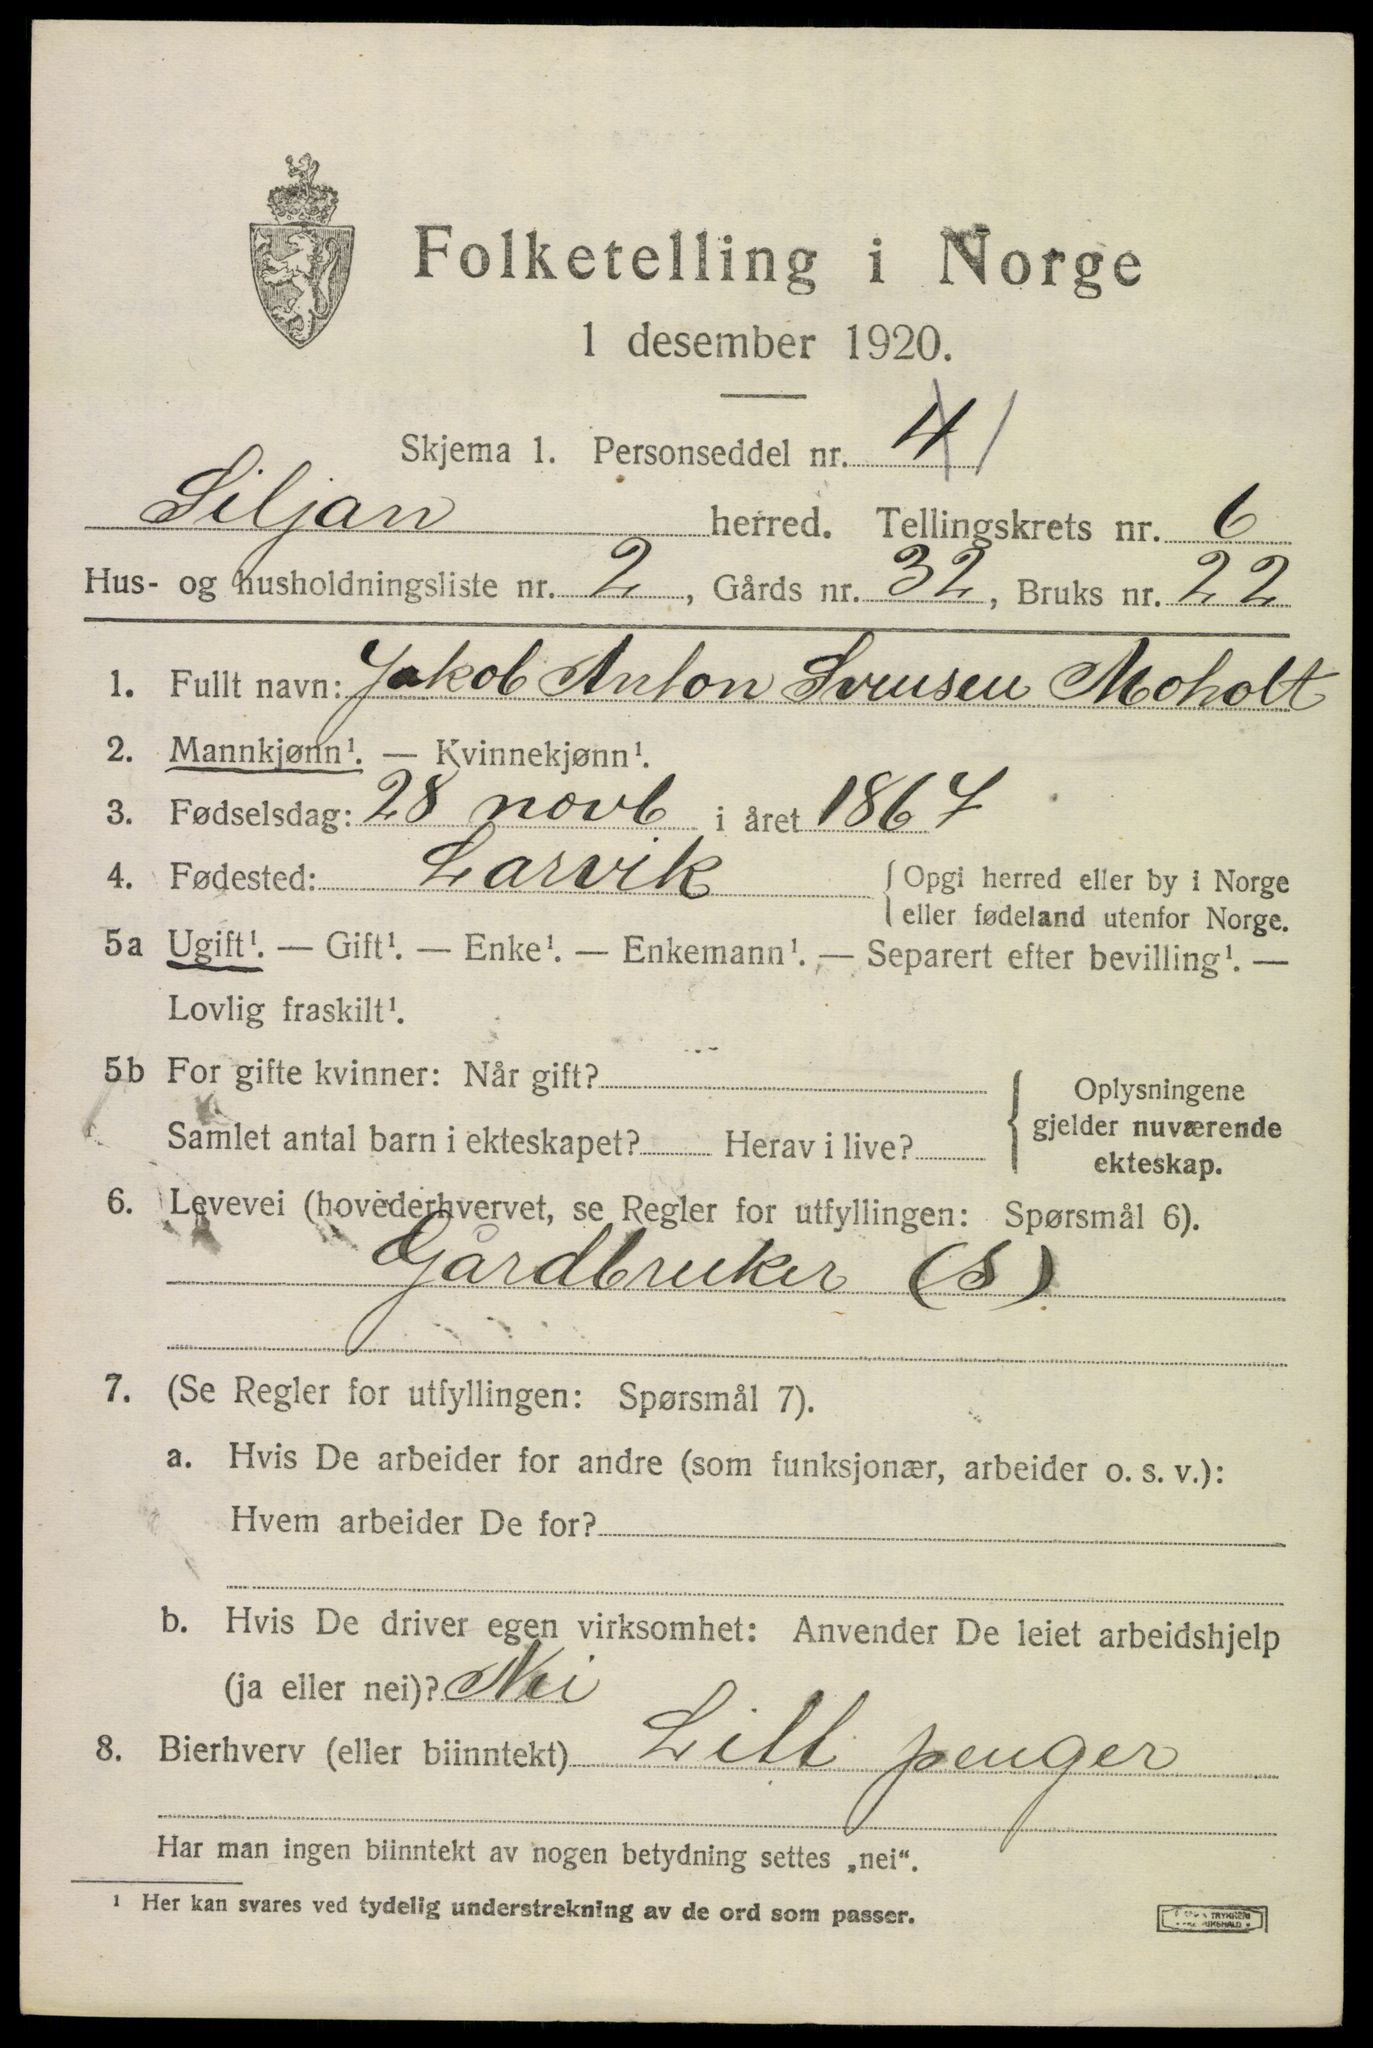 Folketelling i Norge
1 desember 1920.
Skjema 1. Personseddel nr. 4 1
Siljan herred. Tellingskrets nr. 6
Hus- og husholdningsliste nr. 2, Gårds nr. 32, Bruks nr. 22
1. Fullt navn: Jakob Anton Svensen Moholt
2. Mannkjønn¹. — Kvinnekjønn¹.
3. Fødselsdag: 28 novb i året 1867
4. Fødested: Larvik { Opgi herred eller by i Norge
eller fødeland utenfor Norge.
5a Ugift¹. — Gift¹. — Enke¹. — Enkemann¹. — Separert efter bevilling¹. —
Lovlig fraskilt¹.
5b For gifte kvinner: Når gift?
Samlet antal barn i ekteskapet? Herav i live?
{ Oplysningene
gjelder nuværende
ekteskap.
6. Levevei (hovederhvervet, se Regler for utfyllingen: Spørsmål 6).
Gårdbruker (S)
7. (Se Regler for utfyllingen: Spørsmål 7).
a. Hvis De arbeider for andre (som funksjonær, arbeider o. s. v.):
Hvem arbeider De for?
b. Hvis De driver egen virksomhet: Anvender De leiet arbeidshjelp
(ja eller nei)? Nei
8. Bierhverv (eller biinntekt) Litt penger
Har man ingen biinntekt av nogen betydning settes „nei“.
¹ Her kan svares ved tydelig understrekning av de ord som passer.